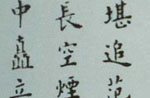 堪追范
長空煙
申矗立